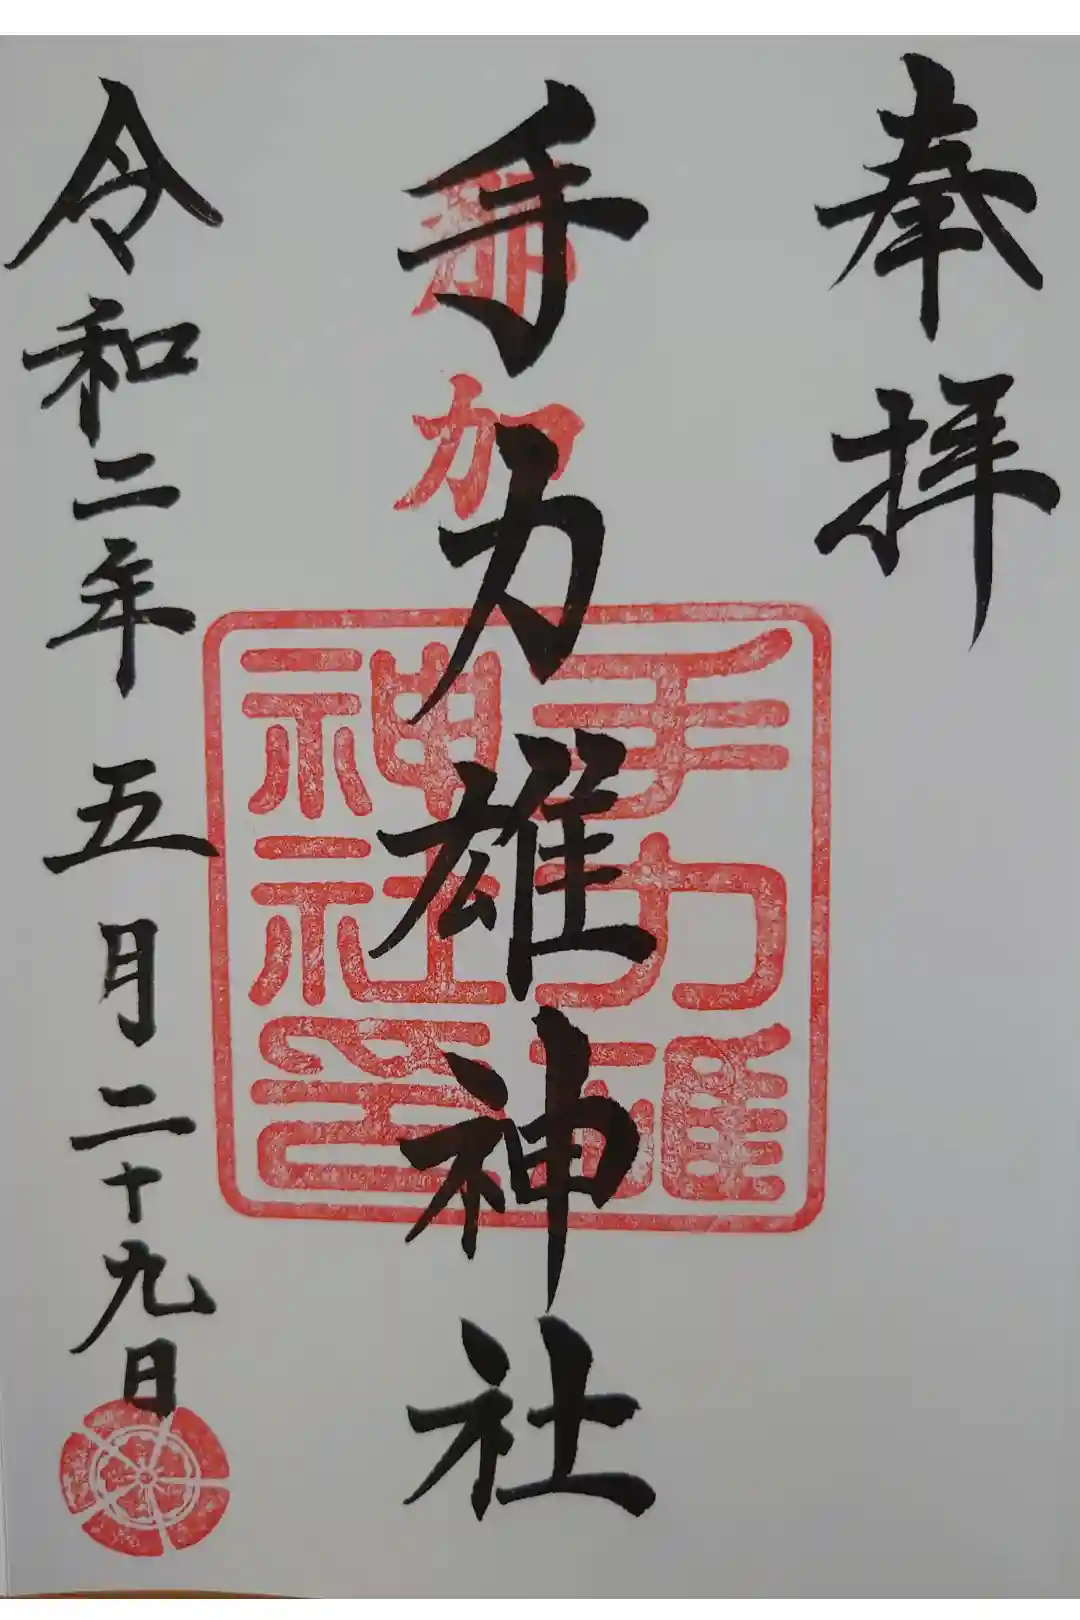 奉拝
那加
手力雄神社
手力雄
神社印
令和二年 五月二十九日